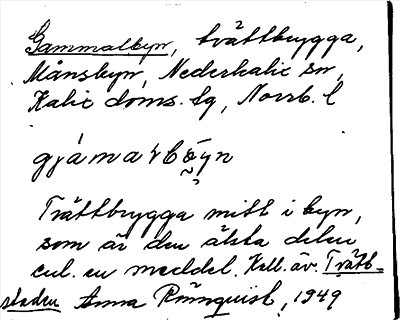 Gammalbyn, tvättbrygga,
Månsbyn, Nederkalix sn,
Kalix doms. lg, Norrb. l
gjámarbǿyn
Tvättbrygga mitt i byn,
som är den älsta delen
enl. en meddel. Kall. äv. Tvätt-
staden Anna Rönnquist, 1949